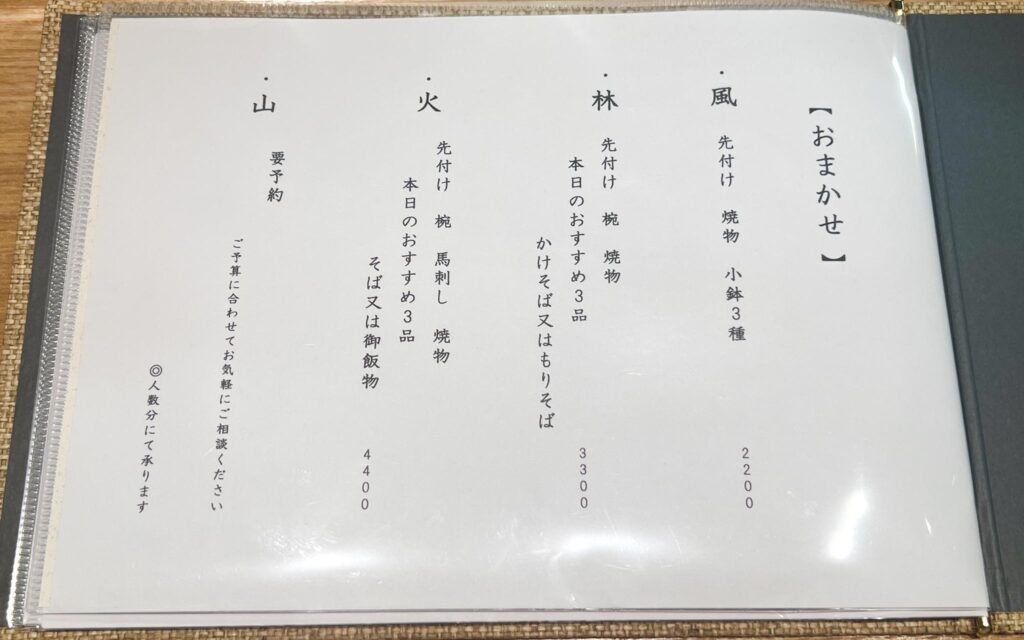 【おまかせ】
・風
先付け 焼物 小鉢3種
2200
・林
先付け 椀 焼物
本日のおすすめ3品
かけそば又はもりそば
3300
・火
先付け 椀 馬刺し 焼物
本日のおすすめ3品
そば又は御飯物
4400
・山
要予約
ご予算に合わせてお気軽にご相談ください
◎人数分にて承ります